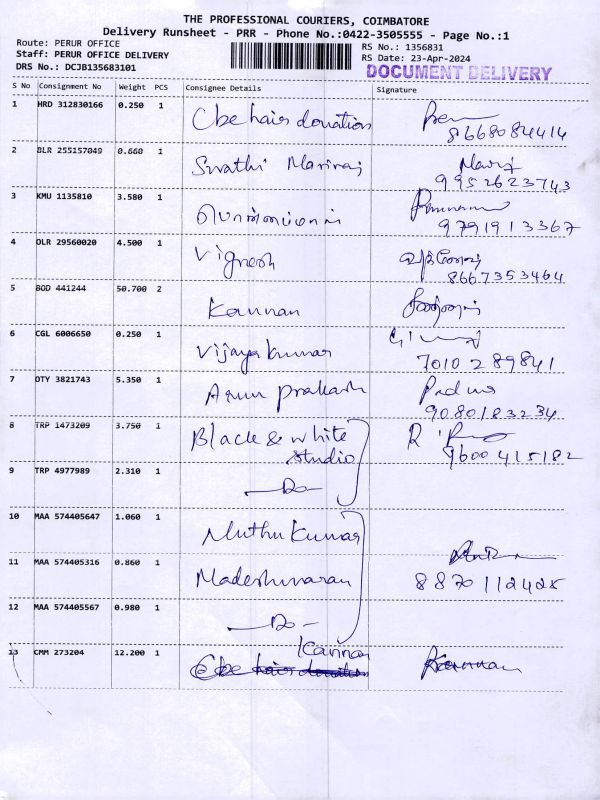 THE PROFESSIONAL COURIERS, COIMBATORE
Delivery Runsheet - PRR - Phone No.:0422-3505555 - Page No.:1
Route: PERUR OFFICE
Staff: PERUR OFFICE DELIVERY
DRS No.: DCJB135683101
RS No.: 1356831
RS Date: 23-Apr-2024
DOCUMENT DELIVERY
S No Consignment No Weight PCS Consignee Details Signature
1 HRD 312830166 0.250 1 Cbe hair donation
8668084414
2 BLR 255157049 0.660 1 Swathi Mariraj
9952623743
3 KMU 1135810 3.580 1
9791913367
4 OLR 29560020 4.500 1 Vignesh
8667353464
5 BOD 441244 50.700 2 Kannan
6 CGL 6006650 0.250 1 Vijaya kumar
7010289841
7 OTY 3821743 5.350 1 Arun prakash Padma
9080183234
8 TRP 1473209 3.750 1 Black & white
studio
9600415182
9 TRP 4977989 2.310 1 —Do—
10 MAA 574405647 1.060 1 Muthu kumar
11 MAA 574405316 0.860 1 Madeshwaran
8870112425
12 MAA 574405567 0.980 1 —Do—
Kannan
13 CMM 273204 12.200 1 Cbe hair donation Kannan